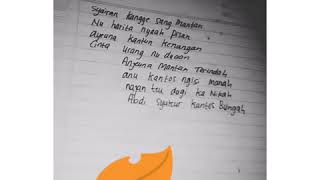 Syairan kangge sang Mantan
Nu harita nyaah Pisan
ayeuna kantun kenangan
Cinta urang nu duaan
Anjeuna Mantan Terindah
anu kantos ngisi manah
najan teu dugi ka Nikah
Abdi Syukur kantos Bungah